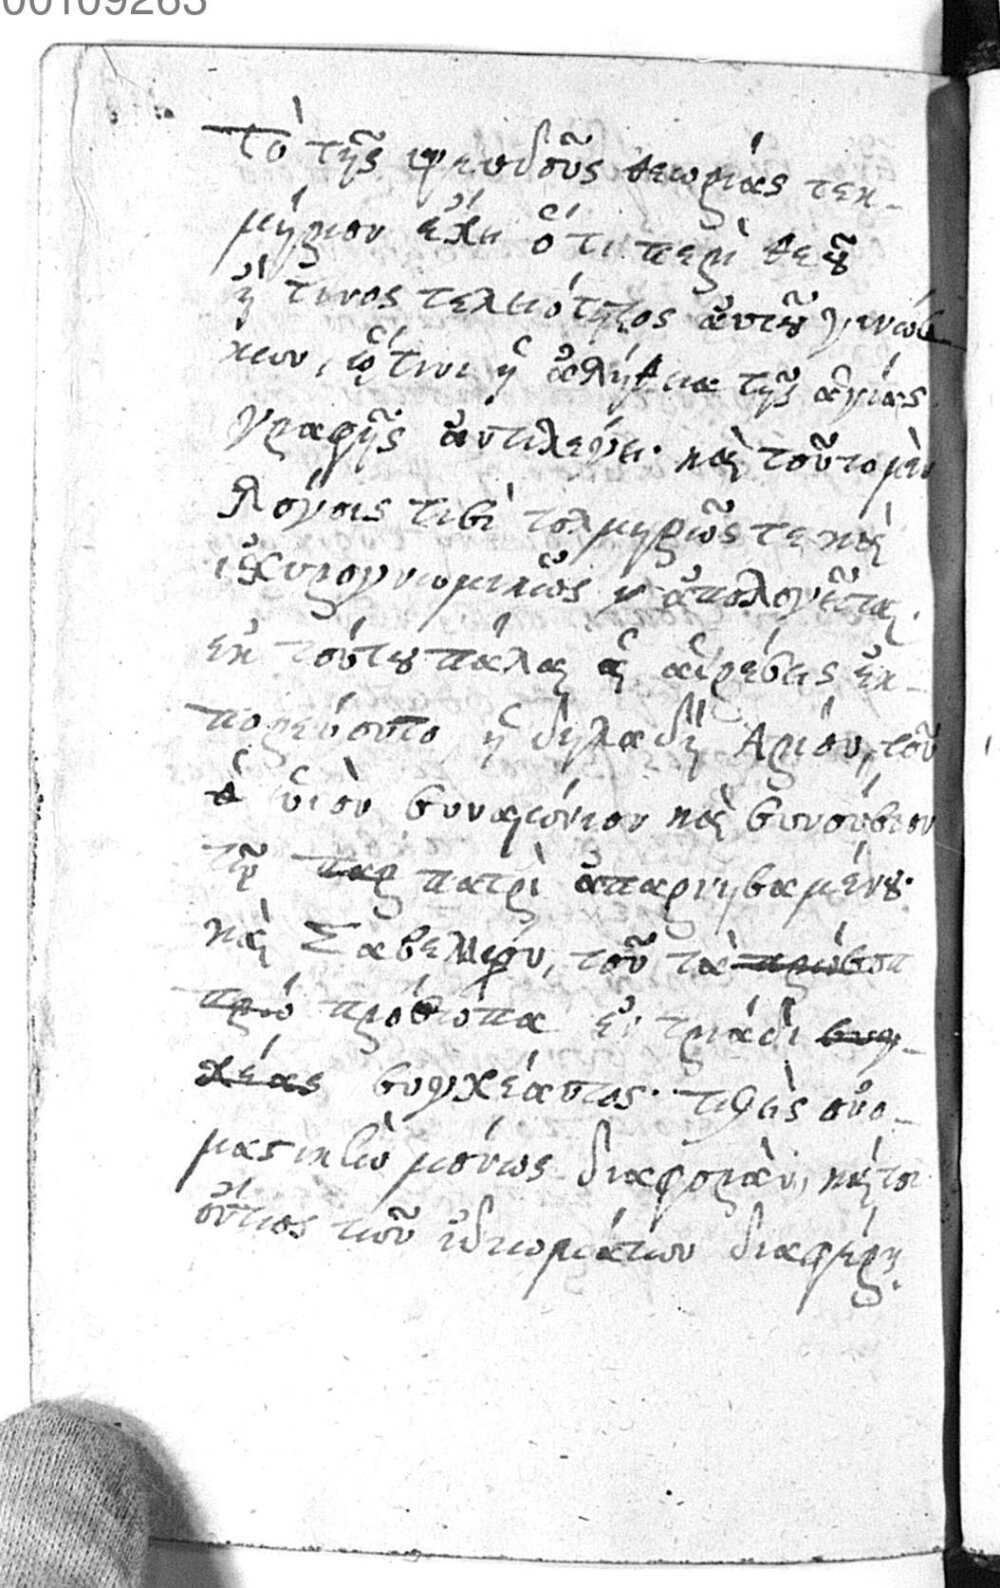 00109263
τὸ τῆς ψευδοῦς θεωρίας τεκ-
μήριον ἔχει ὅτι περὶ θεοῦ
ἤ τινος τελειότητος ἀυτοῦ γινώσ
κειν, ᾧτινι ἡ ἀλήθεια τῆς ἁγίας
γραφῆς ἀντιλέγει· καὶ τοῦτο μὲν
λόγοις τισὶ τολμηρῶς τε καὶ
ἰσχυρογνωμικῶς ἀπολογεῖται.
ἐκ τούτου πάλαι αἱ αἱρέσεις ἐκ-
πορεύοντο ἡ δηλαδὴ Αρείου, τοῦ
ὑιὸν συναιώνιον καὶ συνούσιον
τῷ παρ πατρὶ ἀπαρνησαμένου·
καὶ Σαβελλίου, τοῦ τὰ πρώσοπ
πρό πρόσωπα ἐν τριάδι συγ-
χέας συγχέαντος· τιθεὶς ονο-
μαστικὴν μόνως διαφορὰν, καίτοι
ὄντως τῶν ἰδιωμάτων διαφέρει.